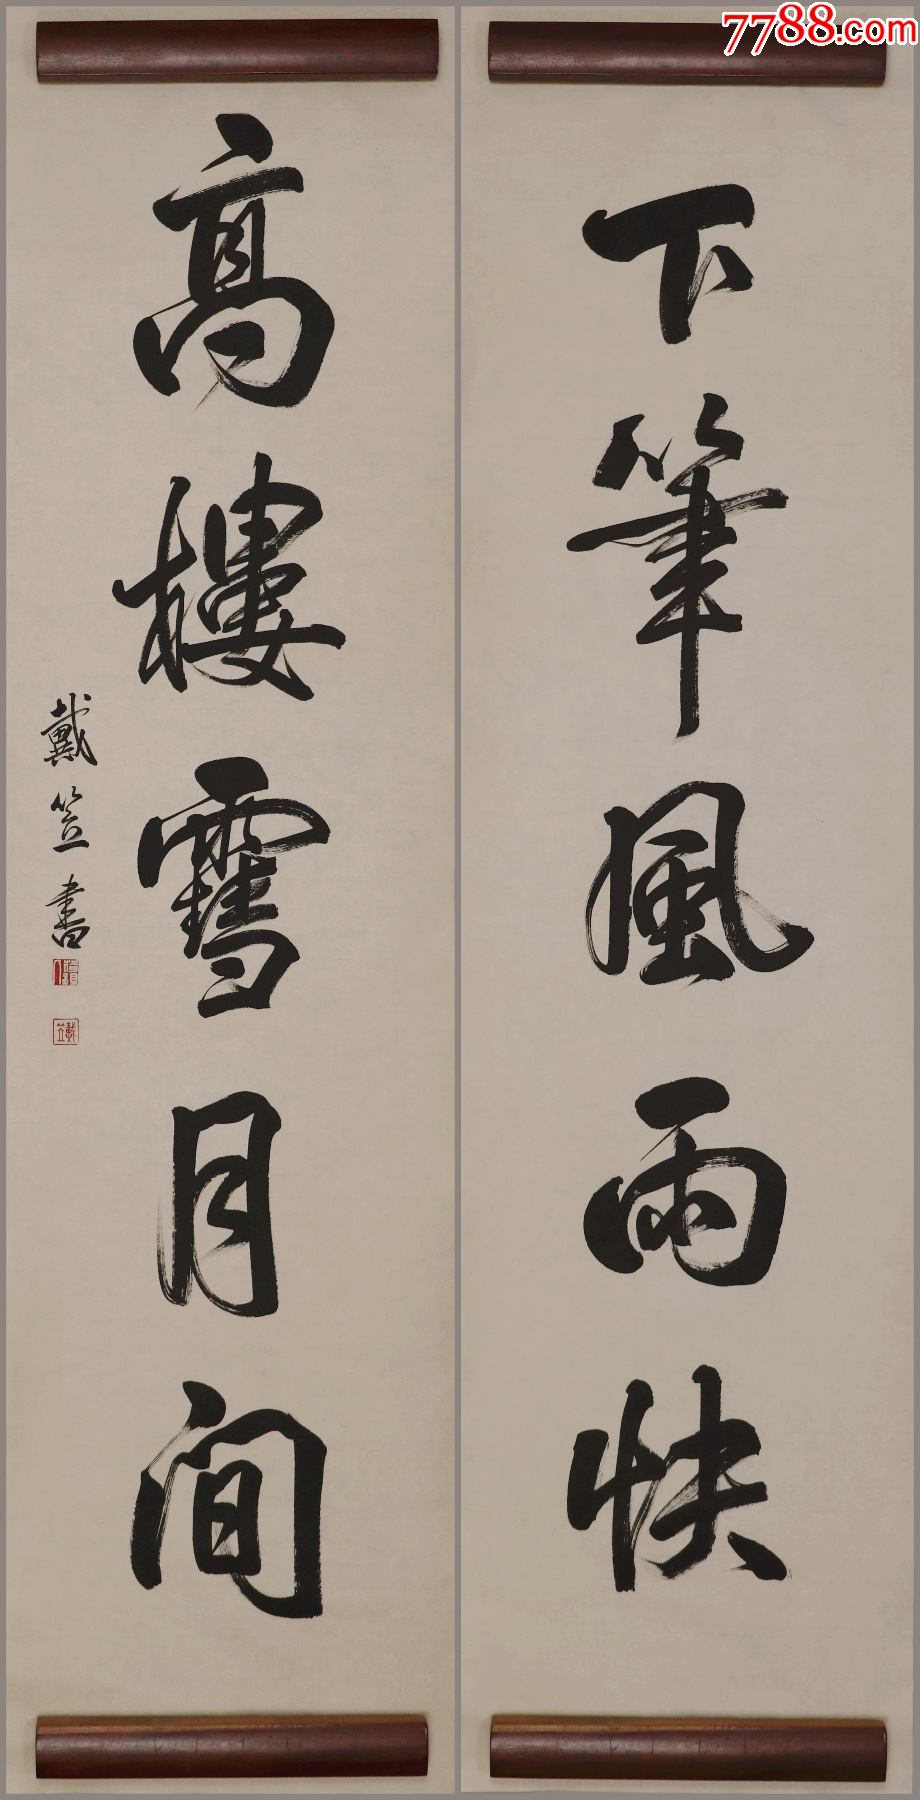 7788.com
下筆風雨快
高樓雪月間
戴笠書